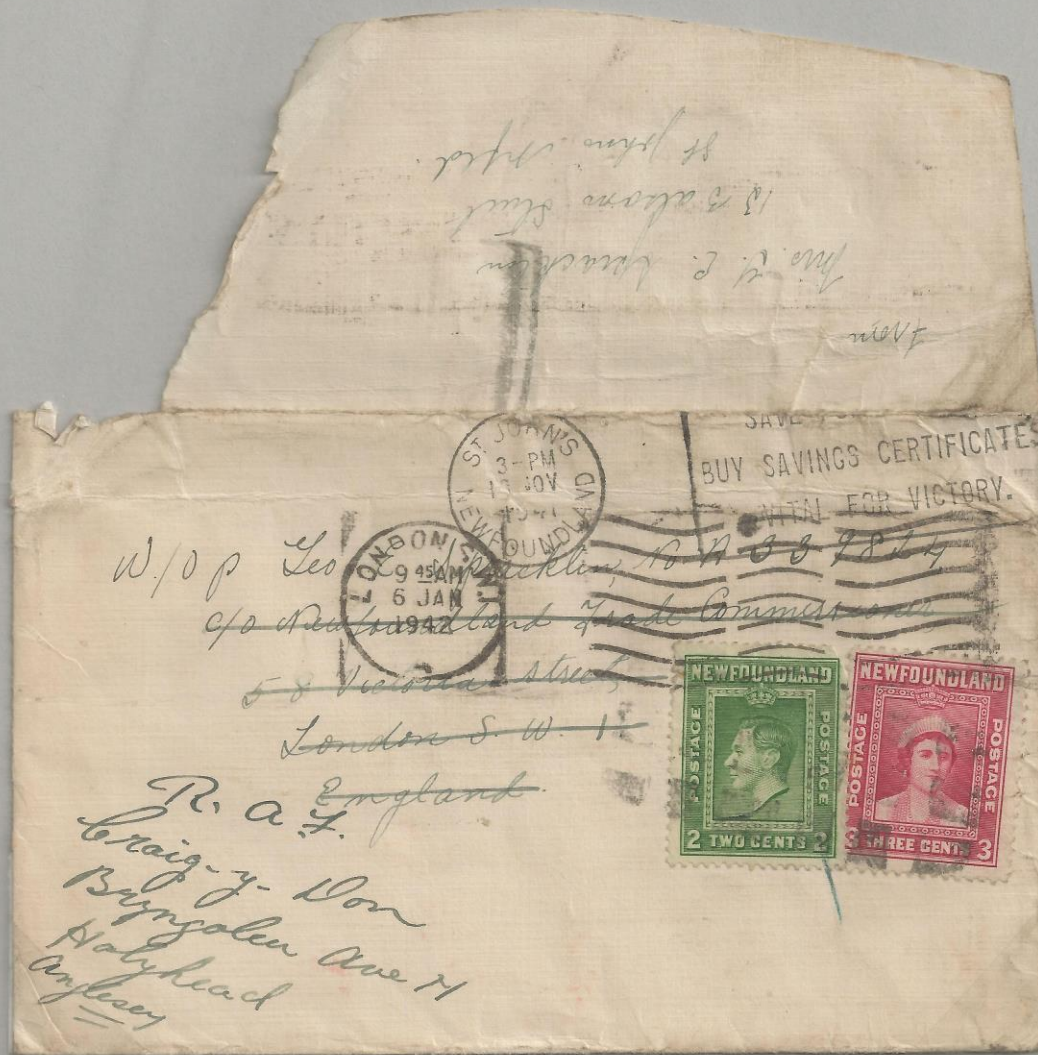 From
Mrs. G. C. Spracklin
13 Balsam Street
St Johns Nfld.
ST. JOHN'S
3-PM
NOV
NEWFOUNDLAND
SAVE
BUY SAVINGS CERTIFICATES
VITAL FOR VICTORY.
LONDON
9 45 AM
6 JAN
1942
W/O P Geo Spracklin,
c/o Newfoundland Trade Commissioner
58 Victoria Street
London S. W. 1
England.
R. A. F.
Craig-y-Don
Bryngoleu Ave
Holyhead
Anglesey
NEWFOUNDLAND
POSTAGE
POSTAGE
2 TWO CENTS 2
NEWFOUNDLAND
POSTAGE
POSTAGE
3 THREE CENTS 3